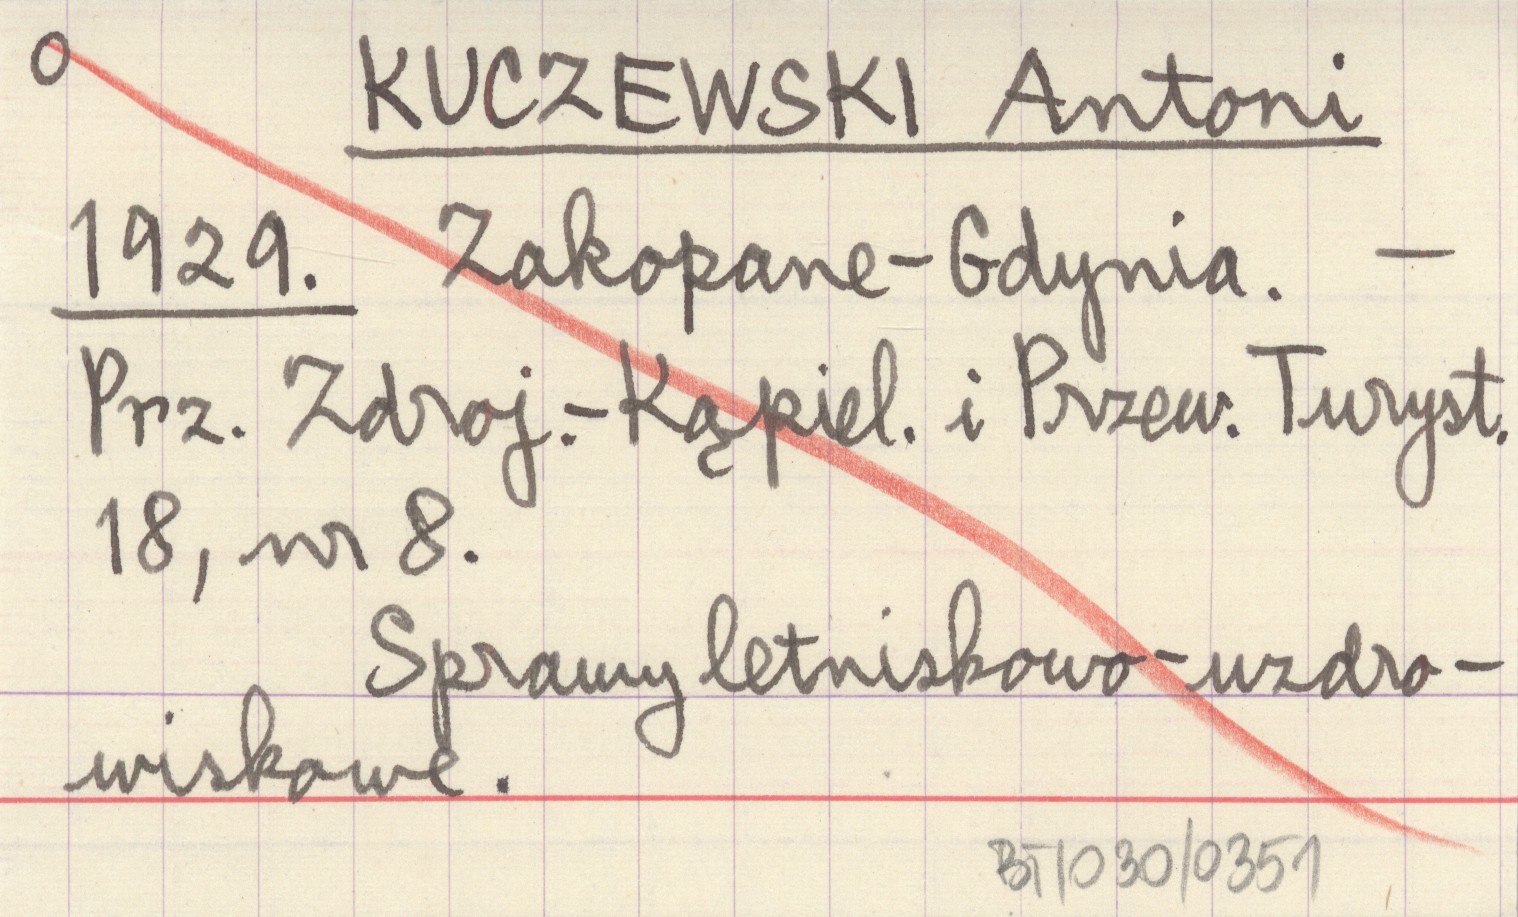 O KUCZEWSKI Antoni
1929. Zakopane-Gdynia. —
Prz. Zdroj.-Kąpiel. i Przew. Turyst.
18, nr 8.
Sprawy letniskowo-uzdro-
wiskowe.
BT/030/0351